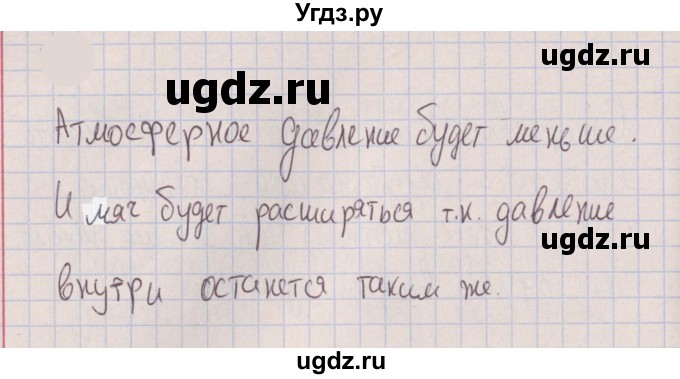 Угдз.ру
ugdz.ru
ugdz.ru
Атмосферное давление будет меньше.
И мяч будет расширяться т.к. давление
ugdz.ru
внутри останется таким же.
ugdz.ru